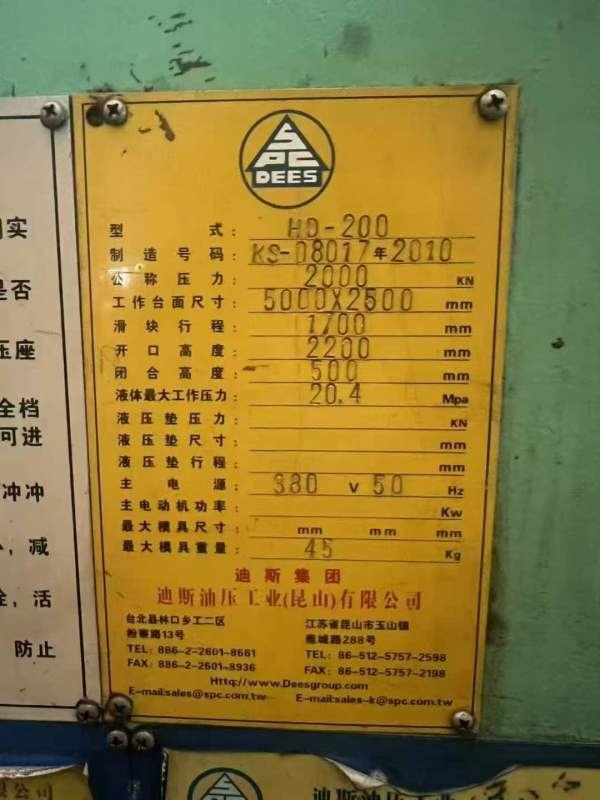 SPC
DEES
型 式: HD-200
制造号码: KS-08017年2010
公称压力: 2000 KN
工作台面尺寸: 5000X2500 mm
滑块行程: 1700 mm
开口高度: 2200 mm
闭合高度: 500 mm
液体最大工作压力: 20.4 Mpa
液压垫压力: KN
液压垫尺寸: mm
液压垫行程: mm
主电源: 380 V 50 Hz
主电动机功率: Kw
最大模具尺寸: mm mm mm
最大模具重量: 45 Kg
迪斯集团
迪斯油压工业(昆山)有限公司
台北县林口乡工二区
粉寮路13号
TEL: 886-2-2601-8661
FAX: 886-2-2601-8936
江苏省昆山市玉山镇
鹿城路288号
TEL: 86-512-5757-2598
FAX: 86-512-5757-2198
Http://www.Deesgroup.com
E-mail:sales@spc.com.tw
E-mail:sales-k@spc.com.tw
实
是否
压座
全档
可进
冲冲
, 减
, 活
防止
限公司
迪斯油压工业